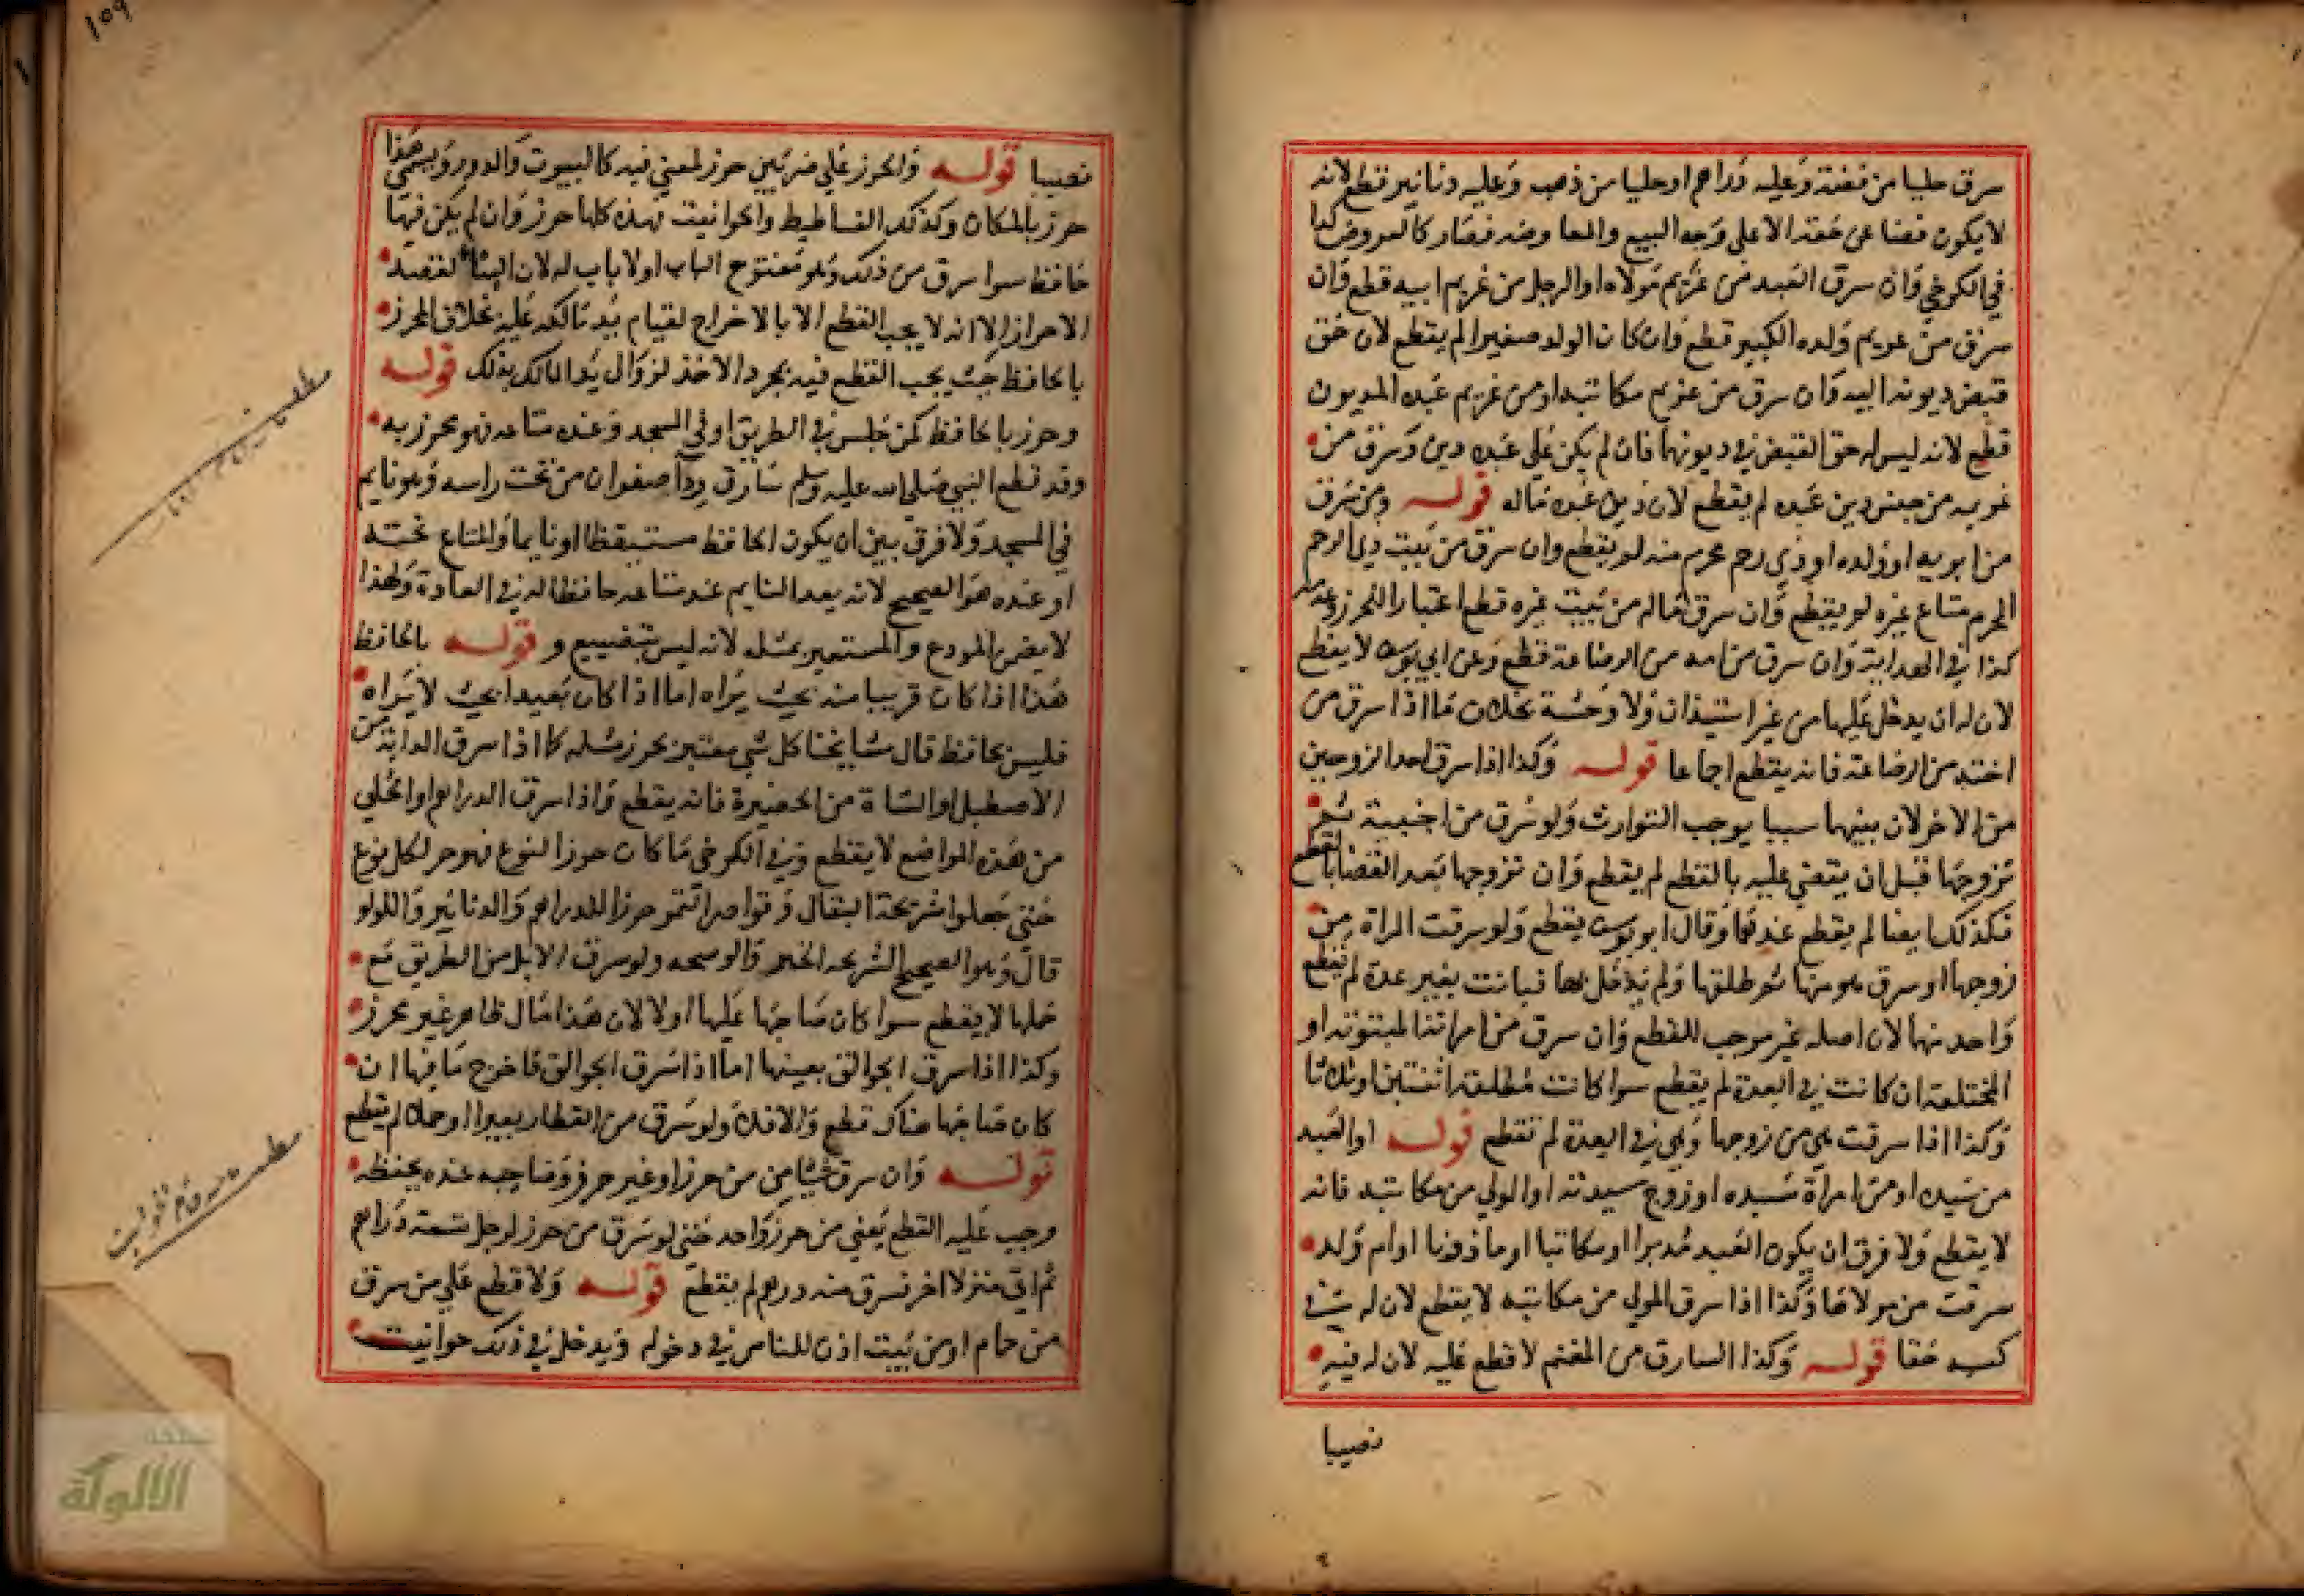 سرق حليا من فضة وعليه دراهم او حليا من ذهب وعليه دنانير قطع لانه
لا يكون قضا عن حقه الا على وجه البيع والمعاوضه فصار كالعروض كذا
في الكرخي وان سرق العبد من غريم مولاه او الرجل من غريم ابيه قطع وان
سرق من غريم ولده الكبير قطع وان كان الولد صغيرا لم يقطع لان حق
قبض ديونه اليه وان سرق من غريم مكاتبه او من غريم عبده المديون
قطع لانه ليس له حق القبض في ديونهما فان لم يكن على عبده دين وسرق من
غريمه من جنس دين عبده لم يقطع لان دين عبده ماله قوله ومن سرق
من ابويه او ولده او ذي رحم محرم منه لم يقطع وان سرق من بيت ذي الرحم
المحرم متاع غيره لم يقطع وان سرق ماله من بيت غيره قطع اعتبارا للحرز وعدمه
كذا في الهداية وان سرق من امه من الرضاعة قطع وعن ابي يوسف لا يقطع
لان له ان يدخل عليها من غير استيذان ولا وحشة بخلاف ما اذا سرق من
اخته من الرضاعة فانه يقطع اجماعا قوله وكذا اذا سرق احد الزوجين
من الاخر لان بينهما سببا يوجب التوارث ولو سرق من اجنبية ثم
تزوجها قبل ان يقضي عليه بالقطع لم يقطع وان تزوجها بعد القضا بالقطع
فكذلك ايضا لم يقطع عندهما وقال ابو يوسف يقطع ولو سرقت المراة من
زوجها او سرق هو منها ثم طلقها ولم يدخل بها فبانت بغير عدة لم يقطع
واحد منهما لان اصله غير موجب للقطع وان سرق من امراته المبتوتة او
المختلعة ان كانت في العدة لم يقطع سوا كانت مطلقة اثنتين او ثلاثا
وكذا اذا سرقت هي من زوجها وهي في العدة لم تقطع قوله او العبد
من سيده او من امراة سيده او زوج سيدته او المولي من مكاتبه فانه
لا يقطع ولا فرق ان يكون العبد مدبرا او مكاتبا او ماذونا او ام ولد
سرقت من مولاها وكذا اذا سرق المولى من مكاتبه لا يقطع لان له في
كسبه حقا قوله وكذا السارق من المغنم لا قطع عليه لان له فيه
نصيبا
١٥٩
نصيبا قوله والحرز على ضربين حرز لمعني فيه كالبيوت والدور ويسمى هذا
حرز بالمكان وكذلك الفساطيط والحوانيت فهذه كلها حرز وان لم يكن فيها
حافظ سوا سرق من ذلك وهو مفتوح الباب او لا باب له لان البنا لقصد
الاحراز الا انه لا يجب القطع الا بالاخراج لقيام يد مالكه عليه بخلاف المحرز
بالحافظ حيث يجب القطع فيه بمجرد الاخذ لزوال يد المالك بذلك قوله
وحرز بالحافظ كمن جلس في الطريق او في المسجد وعنده متاعه فهو محرز به
وقد قطع النبي صلى الله عليه وسلم سارق ردا صفوان من تحت راسه وهو نايم
في المسجد ولا فرق بين ان يكون الحافظ مستيقظا او نايما والمتاع تحته
او عنده هو الصحيح لانه يعد النايم عند متاعه حافظا له في العادة ولهذا
لا يضمن المودع والمستعير بمثله لانه ليس بتضييع و قوله بالحافظ
هذا اذا كان قريبا منه بحيث يراه اما اذا كان بعيدا بحيث لا يراه
فليس بحافظ قال مشايخنا كل شي معتبر بحرز مثله كما اذا سرق الدابة من
الاصطبل او الشاة من الحضيرة فانه يقطع واذا سرق الدراهم او الحلي
من هذه المواضع لا يقطع وفي الكرخي ما كان حرزا لنوع فهو حرز لكل نوع
حتى جعلوا شريحة البقال وقواصر التمر حرزا للدراهم والدنانير واللولو
قال وهو الصحيح ولو سرق الابل من الطريق مع
حملها لا يقطع سوا كان صاحبها عليها او لا لان هذا مال ظاهر غير محرز
وكذا اذا سرق الجوالق بعينها اما اذا سرق الجوالق فاخرج ما فيها ان
كان صاحبها هناك قطع والا فلا ولو سرق من القطار بعيرا او حملا لم يقطع
قوله وان سرق شيا من حرز او غير حرز وصاحبه عنده يحفظه
وجب عليه القطع يعني من حرز واحد حتى لو سرق من حرز لرجل تسعة دراهم
ثم اتى منزلا اخر فسرق منه درهم لم يقطع قوله ولا قطع على من سرق
من حمام او من بيت اذن للناس في دخوله ويدخل في ذلك حوانيت
الألوكة